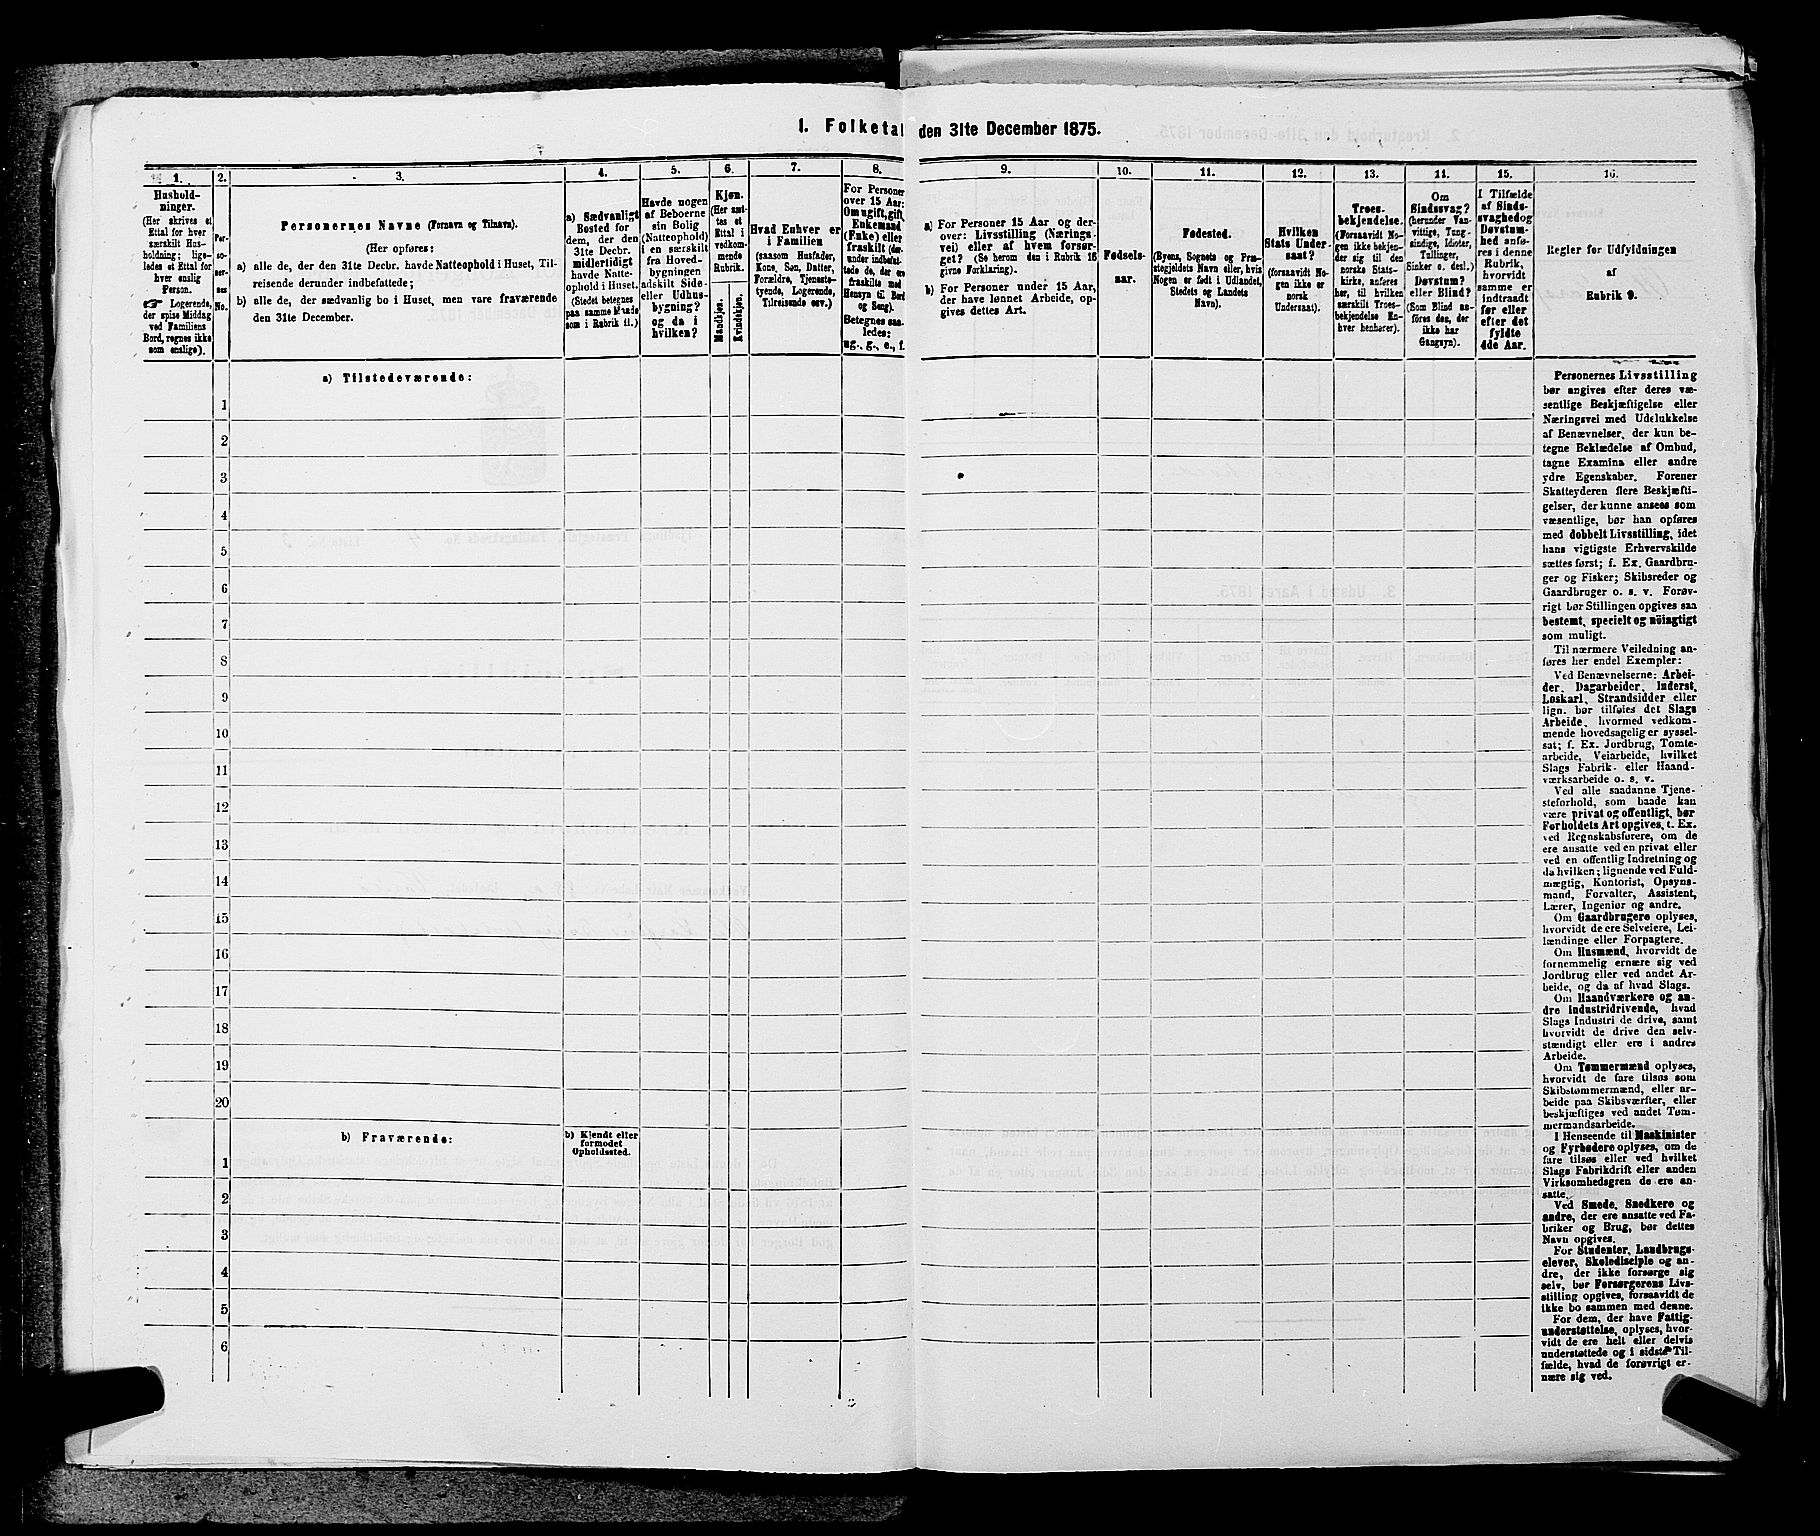 1. Folketal den 31te December 1875.
1.
2.
3.
4.
5.
6.
7.
8.
9.
10.
11.
12.
13.
14.
15.
16.
Hushold-
ninger.
(Her skrives et
Ettal for hver
særskilt Hus-
holdning; lige-
ledes et Ettal for
hver enslig
Person.
☞ Logerende,
der spise Middag
ved Familiens
Bord, regnes ikke
som enslige).
Per-
so-
ner-
nes
No.
Personernes Navne (Fornavn og Tilnavn).
(Her opføres:
a) alle de, der den 31te Decbr. havde Natteophold i Huset, Til-
reisende derunder indbefattede;
b) alle de, der sædvanlig bo i Huset, men vare fraværende
den 31te December.
a) Sædvanligt
Bosted for
dem, der den
31te Decbr.
midlertidigt
havde Natte-
ophold i Huset.
(Stedet betegnes
paa samme Maade
som i Rubrik 11.)
Havde nogen
af Beboerne
sin Bolig
(Natteophold)
i en særskilt
fra Hoved-
bygningen
adskilt Side-
eller Udhus-
bygning?
og da i
hvilken?
Kjøn.
(Her sæt-
tes et
Ettal i
vedkom-
mende
Rubrik.
Mandkjøn.
Kvindekjøn.
Hvad Enhver er
i Familien
(saasom Husfader,
Kone, Søn, Datter,
Forældre, Tjeneste-
tyende, Logerende,
Tilreisende osv.)
For Personer
over 15 Aar:
Om ugift, gift,
Enkemand
(Enke) eller
fraskilt (der-
under indbefat-
tede de, der ere
fraskilte med
Hensyn til Bord
og Seng).
Betegnes saa-
ledes:
ug., g., e., f.
a) For Personer 15 Aar og der-
over: Livsstilling (Nærings-
vei) eller af hvem forsør-
get? (Se herom den i Rubrik 16
givne Forklaring).
b) For Personer under 15 Aar,
der have lønnet Arbeide, op-
gives dettes Art.
Fødsels-
aar.
Fødested.
(Byens, Sognets og Præ-
stegjeldets Navn eller, hvis
Nogen er født i Udlandet,
Stedets og Landets
Navn).
Hvilken
Stats Under-
saat?
(forsaavidt No-
gen ikke er
norsk
Undersaat).
Troes-
bekjendelse.
(Forsaavidt No-
gen ikke bekjen-
der sig til den
norske Stats-
kirke, anføres
her, til hvilken
særskilt Troes-
bekjendelse En-
hver henhører).
Om
Sindssvag?
(herunder Van-
vittige, Tung-
sindige, Idioter,
Tullinger,
Sinker o. desl.)
Døvstum?
eller Blind?
(Som Blind an-
føres den, der
ikke har
Gangsyn).
I Tilfælde
af Sinds-
svaghed og
Døvstum-
hed anfø-
res i denne
Rubrik,
hvorvidt
samme er
indtraadt
før eller
efter det
fyldte
4de Aar.
Regler for Udfyldningen
af
Rubrik 9.
a) Tilstedeværende:
1
2
3
4
5
6
7
8
9
10
11
12
13
14
15
16
17
18
19
20
b) Fraværende:
b) Kjendt eller
formodet
Opholdssted.
1
2
3
4
5
6
Personernes Livsstilling
bør angives efter deres væ-
sentlige Beskjæftigelse eller
Næringsvei med Udelukkelse
af Benævnelser, der kun be-
tegne Beklædelse af Ombud,
tagne Examina eller andre
ydre Egenskaber. Forener
Skatteyderen flere Beskjæfti-
gelser, der kunne ansees som
væsentlige, bør han opføres
med dobbelt Livsstilling, idet
hans vigtigste Erhvervskilde
sættes først; f. Ex. Gaardbru-
ger og Fisker; Skibsreder og
Gaardbruger o. s. v. Forøv-
rigt bør Stillingen opgives saa
bestemt, specielt og nöiagtigt
som muligt.
Til nærmere Veiledning an-
føres her endel Exempler:
Ved Benævnelserne: Arbei-
der, Dagarbeider, Inderst,
Løskarl, Strandsidder eller
lign. bør tilføies det Slags
Arbeide, hvormed vedkom-
mende hovedsagelig er syssel-
sat; f. Ex. Jordbrug, Tomte-
arbeide, Veiarbeide, hvilket
Slags Fabrik- eller Haand-
værksarbeide o. s. v.
Ved alle saadanne Tjene-
steforhold, som baade kan
være privat og offentligt, bør
Forholdets Art opgives, t. Ex.
ved Regnskabsførere, om de
ere ansatte ved en privat eller
ved en offentlig Indretning og
da hvilken; lignende ved Fuld-
mægtig, Kontorist, Opsyns-
mand, Forvalter, Assistent,
Lærer, Ingeniør og andre.
Om Gaardbrugere oplyses,
hvorvidt de ere Selveiere, Lei-
lændinge eller Forpagtere.
Om Husmænd, hvorvidt de
fornemmelig ernære sig ved
Jordbrug eller ved andet Ar-
beide, og da af hvad Slags.
Om Haandværkere og an-
dre Industridrivende, hvad
Slags Industri de drive, samt
hvorvidt de drive den selv-
stændigt eller ere i andres
Arbeide.
Om Tømmermænd oplyses,
hvorvidt de fare tilsøs som
Skibstømmermænd, eller ar-
beide paa Skibsværfter, eller
beskjæftiges ved andet Tøm-
mermandsarbeide.
I Henseende til Maskinister
og Fyrbødere oplyses, om de
fare tilsøs eller ved hvilket
Slags Fabrikdrift eller anden
Virksomhedsgren de ere an-
satte.
Ved Smede, Snedkere og
andre, der ere ansatte ved Fa-
briker og Brug, bør dettes
Navn opgives.
For Studenter, Landbrugs-
elever, Skoledisciple og an-
dre, der ikke forsørge sig
selv, bør Forsørgerens Livs-
stilling opgives, forsaavidt de
ikke bo sammen med denne.
For dem, der have Fattig-
understøttelse, oplyses, hvor-
vidt de ere helt eller delvis
understøttede og i sidste Til-
fælde, hvad de forøvrigt er-
nære sig ved.